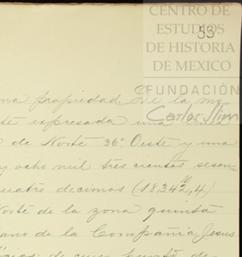 CENTRO DE
ESTUDIOS
DE HISTORIA
DE MEXICO
53
FUNDACIÓN
Carlos Slim
na propiedad de la mi
te expresada una
de Norte 36º Oeste y una
y ocho mil tres cientos sesen
cuatro decimos (18.34
Norte de la zona quinta
ano de la Compañia Jesus